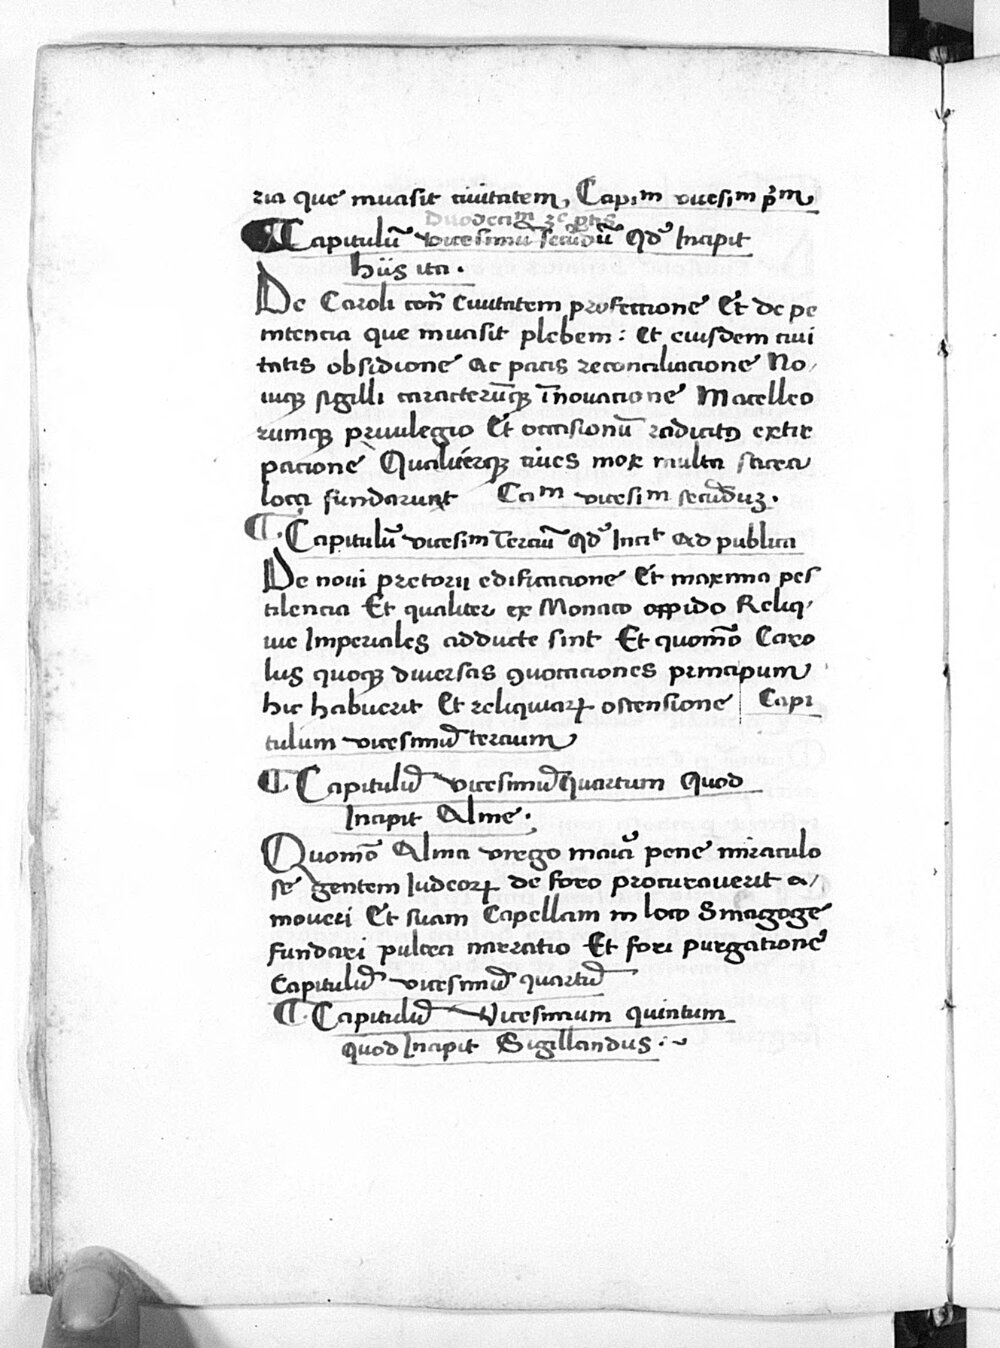 ria que inuasit ciuitatem, Capim vicesim p̃m
Duodecim 2e ptis
Capitulũ vicesimũ secũdũ qd̕ Incipit
hiis ita .
De Caroli con̄ Ciuitatem profeccione Et de pe
nitencia que inuasit plebem : Et eiusdem ciui
tatis obsidione Ac pacis reconciliacione No,
uiqꝫ sigilli caracterũqꝫ ĩnouacione Macelleo
rumqꝫ priuilegio Et occasionũ radicitꝰ extir
pacione Qualiterqꝫ ciues mox multa sacra
loca fundarunt Cam vicesim secũduꝫ .
Capitulũ vicesim Terciũ qd̕ Incit Ad publica
De noui pretorii edificacione Et maxima pes
tilencia Et qualiter ex Monaco oppido Reliq,
uie Imperiales adducte sint Et quomõ Caro
lus quoqꝫ diuersas ꝯuocaciones principum
hic habuerit Et reliquiaꝝ ostensione Capi
tulum vicesimũ tercium
Capitulũ vicesimũ Quartum Quod
Incipit Alme .
Quomõ Alma virgo maiã pene miraculo
se gentem Iudeoꝝ de foro procurauerit a,
moueri Et suam Capellam in loco Sinagoge
fundari pulcra narratio Et fori purgatione
Capitulũ vicesimũ quartũ
Capitulũ Vicesimum quintum
quod Incipit Sigillandus .